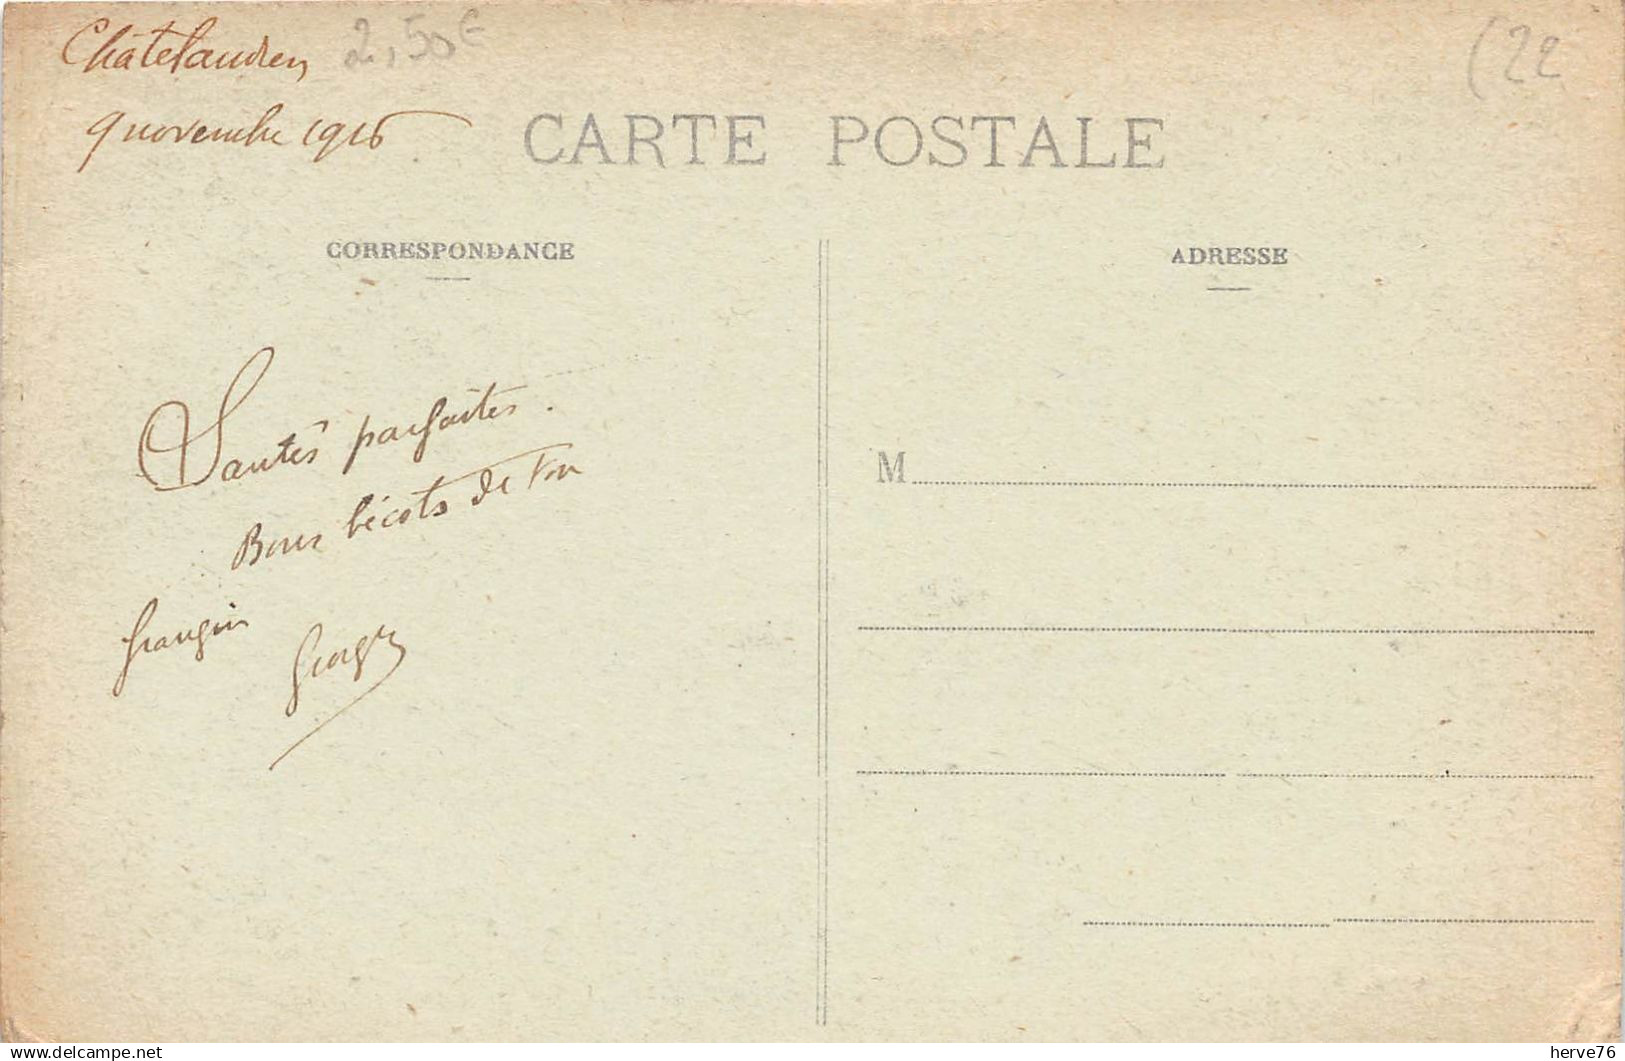 Châtelaudren 2,50€
(22
9 novembre 1916
CARTE POSTALE
CORRESPONDANCE
ADRESSE
Santés parfaites.
Bons bécots de ton
frangin
Georges
M
delcampe.net
herve76